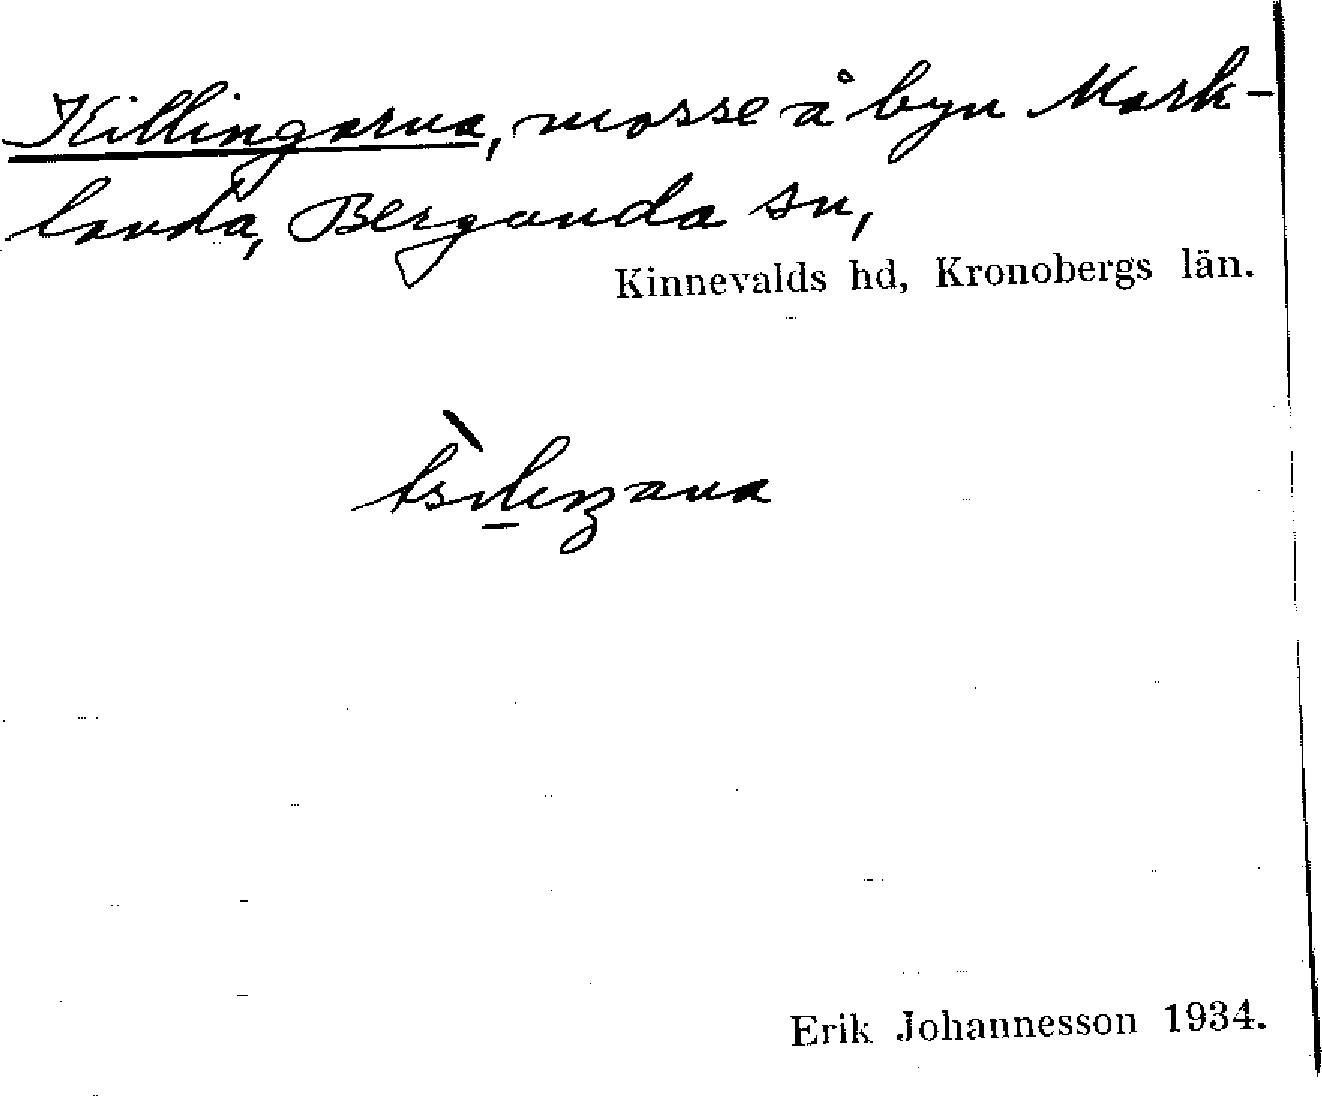 Killingarna, mosse å byn Mark-
landa, Bergunda sn,
Kinnevalds hd, Kronobergs län.
Erik Johannesson 1934.